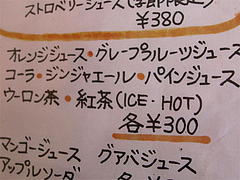 ストロベリージュース(季節限定)
¥380
オレンジジュース・グレープフルーツジュース
コーラ・ジンジャエール・パインジュース
ウーロン茶・紅茶(ICE・HOT)
各¥300
マンゴージュース グァバジュース
アップルソーダ 各¥